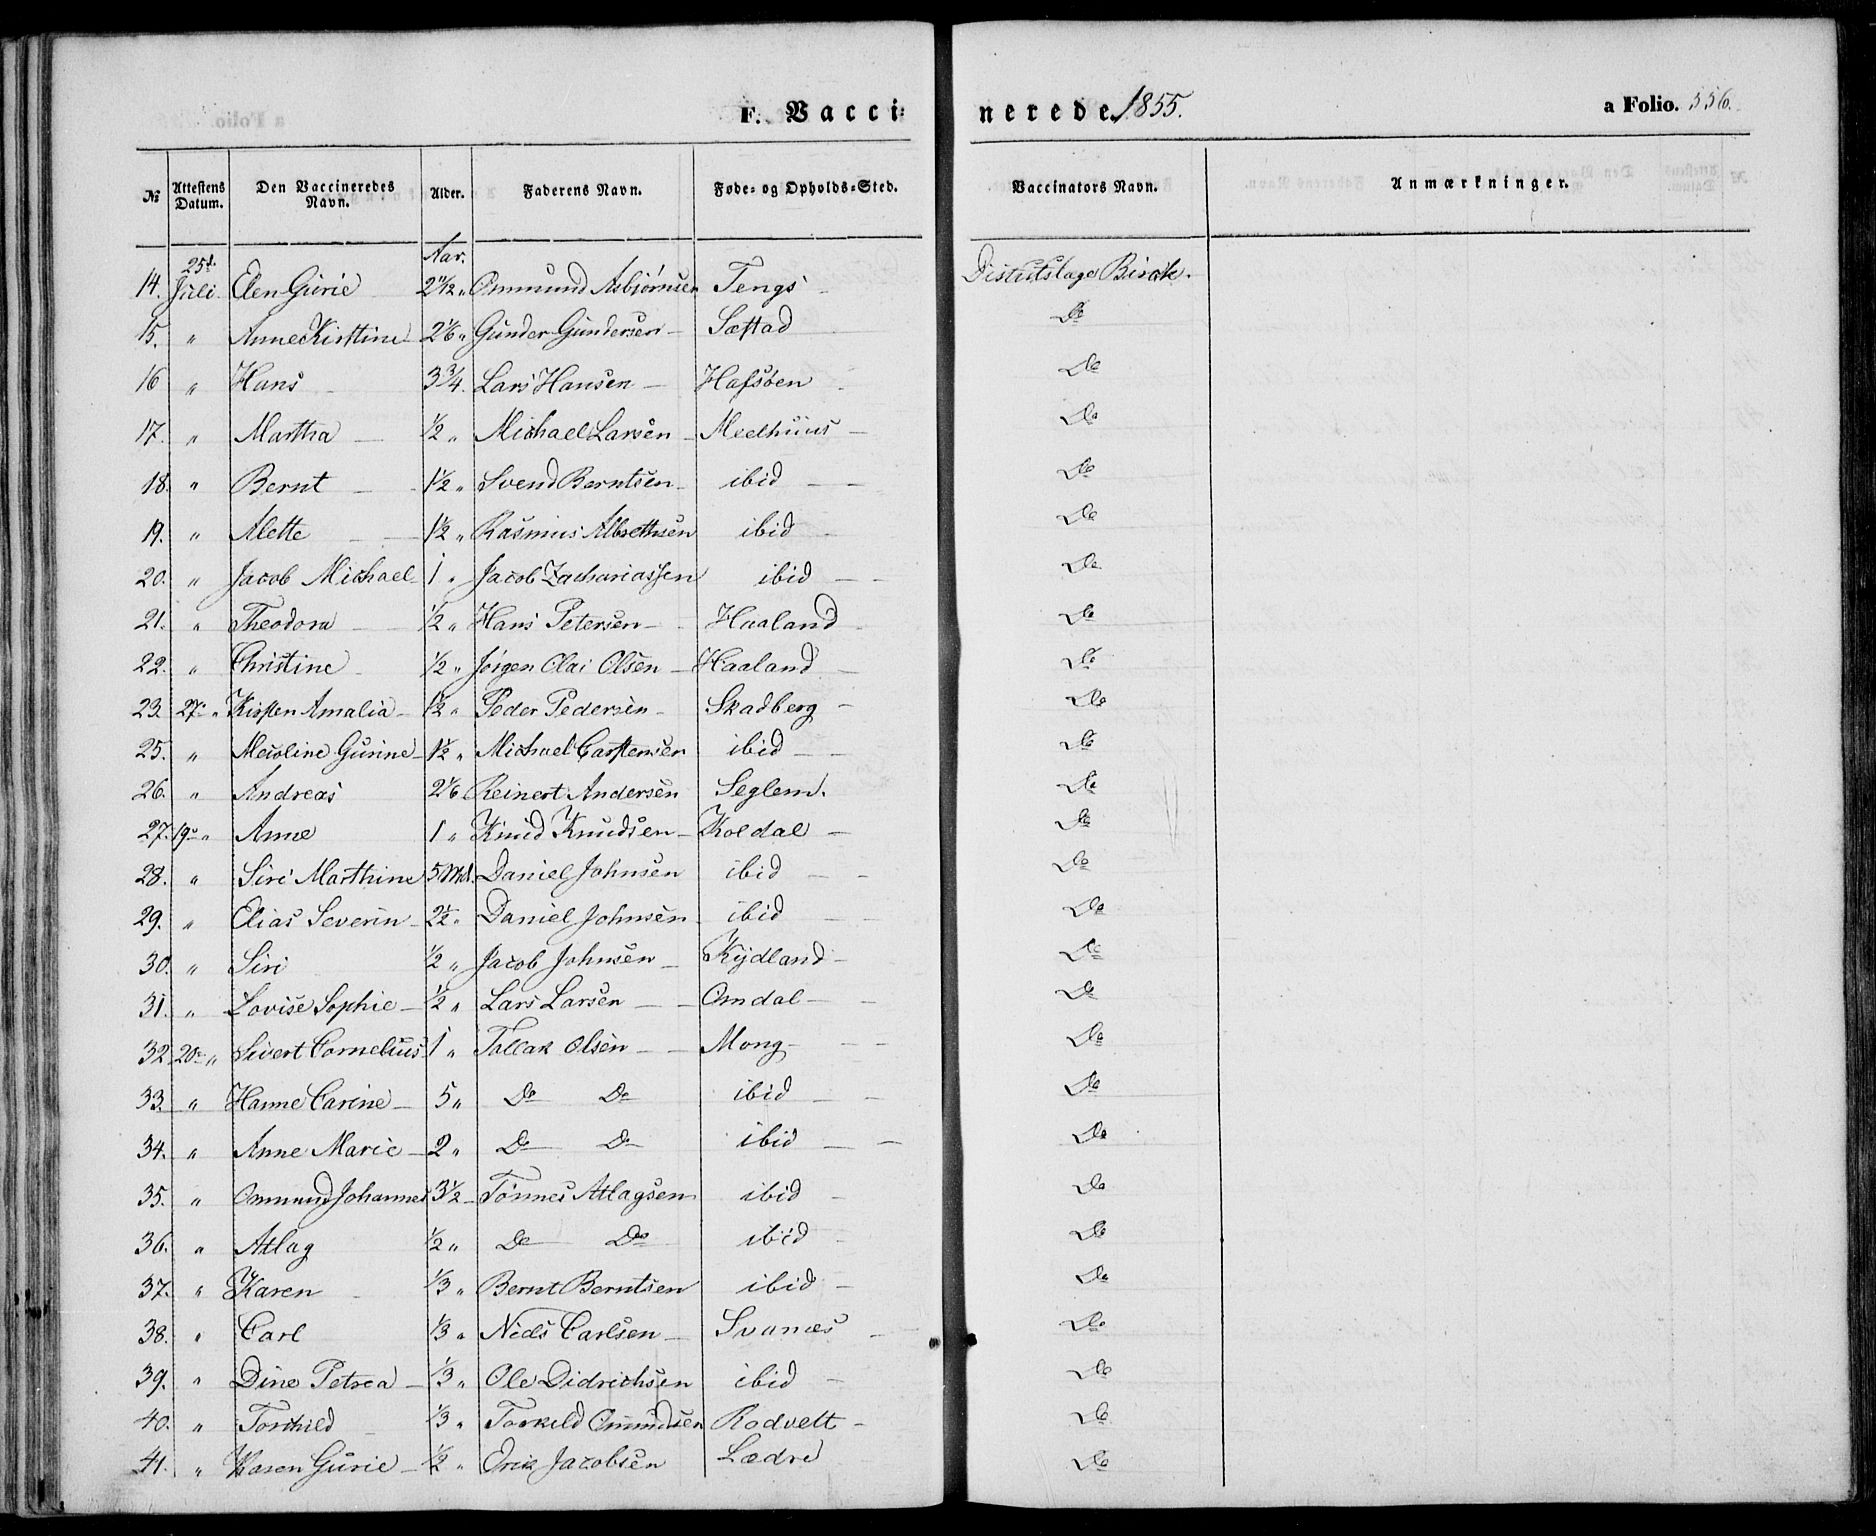 F. Vacci-
nerede 1855.
a Folio. 556.
No Attestens Datum. Den Vaccineredes Navn. Alder. Faderens Navn. Føde- og Opholds-Sted. Vaccinators Navn. Anmærkninger.
Aar.
14. 25d. Juli Elen Gurie 2 1/12 " Ommund Asbjørnsen Tengs Distritslæge Birck.
15. " Anne Kirstine 2 1/6 " Gunder Gundersen Sæstad Do
16 " Hans 3 3/4. Lars Hansen Hafsøen Do
17. " Martha 1/2 " Michael Larsen Meelhuus Do
18. " Bernt 1 1/2 " Svend Berntsen ibid Do
19. " Alette 1 1/2 " Rasmus Albrethsen ibid Do
20. " Jacob Michael 1 " Jacob Zachariassen ibid Do
21. " Theodora 1/2 " Hans Petersen Haaland Do
22. " Christine 1/2 " Jørgen Olai Olsen Haaland Do
23. 27 " Kirsten Amalia 1 1/2 " Peder Pedersen Skadberg Do
25. " Gurine 1 1/2 " Michael Carstensen ibid Do
26. " Andreas 2 1/6 Reinert Andersen Seglem. Do
27. 19 " Anne 1 " Knud Knudsen Koldal Do
28. " Siri Marthine 5 Md. Daniel Johnsen ibid Do
29. " Elias Severin 2 1/2 " Daniel Johnsen ibid Do
30. " Siri 1/2 " Jacob Johnsen Kydland Do
31. " Lovise Sophie 1/2 " Lars Larsen Omdal Do
32. 20 " Sivert Cornelius 1 " Tollak Olsen Mong Do
33. " Hanne Carine 5 " Do Do ibid Do
34. " Anne Marie 2 " Do Do ibid Do
35. " Ommund Johannes 3 1/2 Tønnes Atlagsen ibid Do
36. " Atlag 1/2 " Do Do ibid Do
37. " Karen 1/3 " Bernt Berntsen ibid Do
38. " Carl 1/3 " Niels Carlsen Svanæs Do
39. " Dine Petrea 1/3 " Ole Didrichsen ibid Do
40. " Torchild 1/3 " Torkild Omundsen Rodvelt Do
41. " Karen Gurie 1/2 " Jacobsen Lædre Do